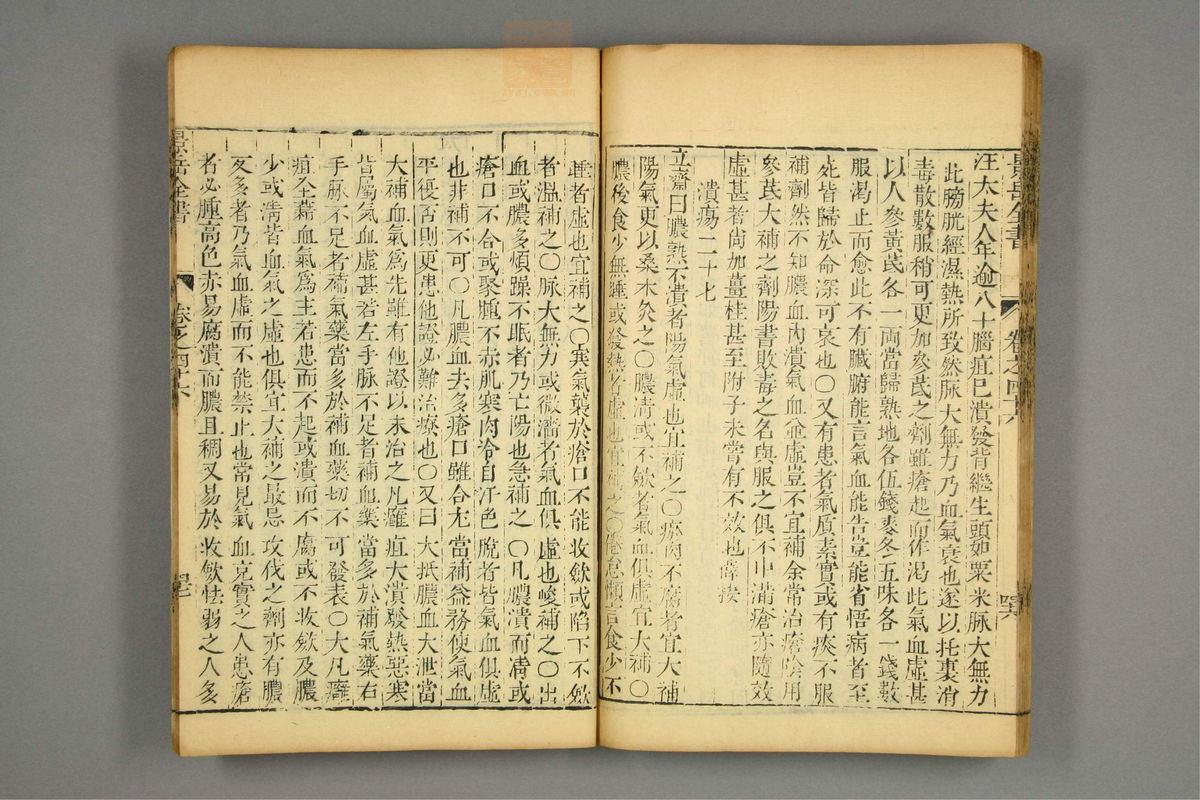 景岳全書
卷之四十六
汪大夫人年逾八十腦疽已潰發背繼生頭如粟米脉大無力
此膀胱經濕熱所致然脉大無力乃血氣衰也遂以托裏消
毒散數服稍可更加參芪之劑雖瘡起而作渴此氣血虛甚
以人參黃芪各一兩當歸熟地各伍錢麥冬五味各一錢數
服渴止而愈此不有臟腑能言氣血能告豈能省悟病者至
死皆歸於命深可哀也〇又有患者氣質素實或有痰不服
補劑然不知膿血內潰氣血並虛豈不宜補余常治瘡陰用
參芪大補之劑陽書敗毒之名與服之俱不中滿瘡亦隨效
虛甚者尚加薑桂甚至附子未嘗有不效也薛按
潰瘍二十七
立齋曰膿熟不潰者陽氣虛也宜補之〇瘀肉不腐者宜大補
陽氣更以桑木灸之〇膿清或不斂者氣血俱虛宜大補〇
膿後食少無睡或發熱者虛也宜補之〇倦怠懶言食少不
睡者虛也宜補之〇寒氣襲於瘡口不能收斂或陷下不斂
者溫補之〇脉大無力或微濇者氣血俱虛也峻補之〇出
血或膿多煩躁不眠者乃亡陽也急補之〇凡膿潰而清或
瘡口不合或聚腫不赤肌寒肉冷自汗色脫者皆氣血俱虛
也非補不可〇凡膿血去多瘡口雖合尤當補益務使氣血
平復否則更患他證必難治療也〇又曰大抵膿血大泄當
大補血氣爲先雖有他證以末治之凡癰疽大潰發熱惡寒
皆屬氣血虛甚若左手脉不足者補血藥當多於補氣藥右
手脉不足者補氣藥當多於補血藥切不可發表〇大凡癰
疽全藉血氣爲主若患而不起或潰而不腐或不收斂及膿
少或清皆血氣之虛也俱宜大補之最忌攻伐之劑亦有膿
反多者乃氣血虛而不能禁止也常見氣血充實之人患瘡
者必腫高色赤易腐潰而膿且稠又易於收斂怯弱之人多
景岳全書
卷之四十六